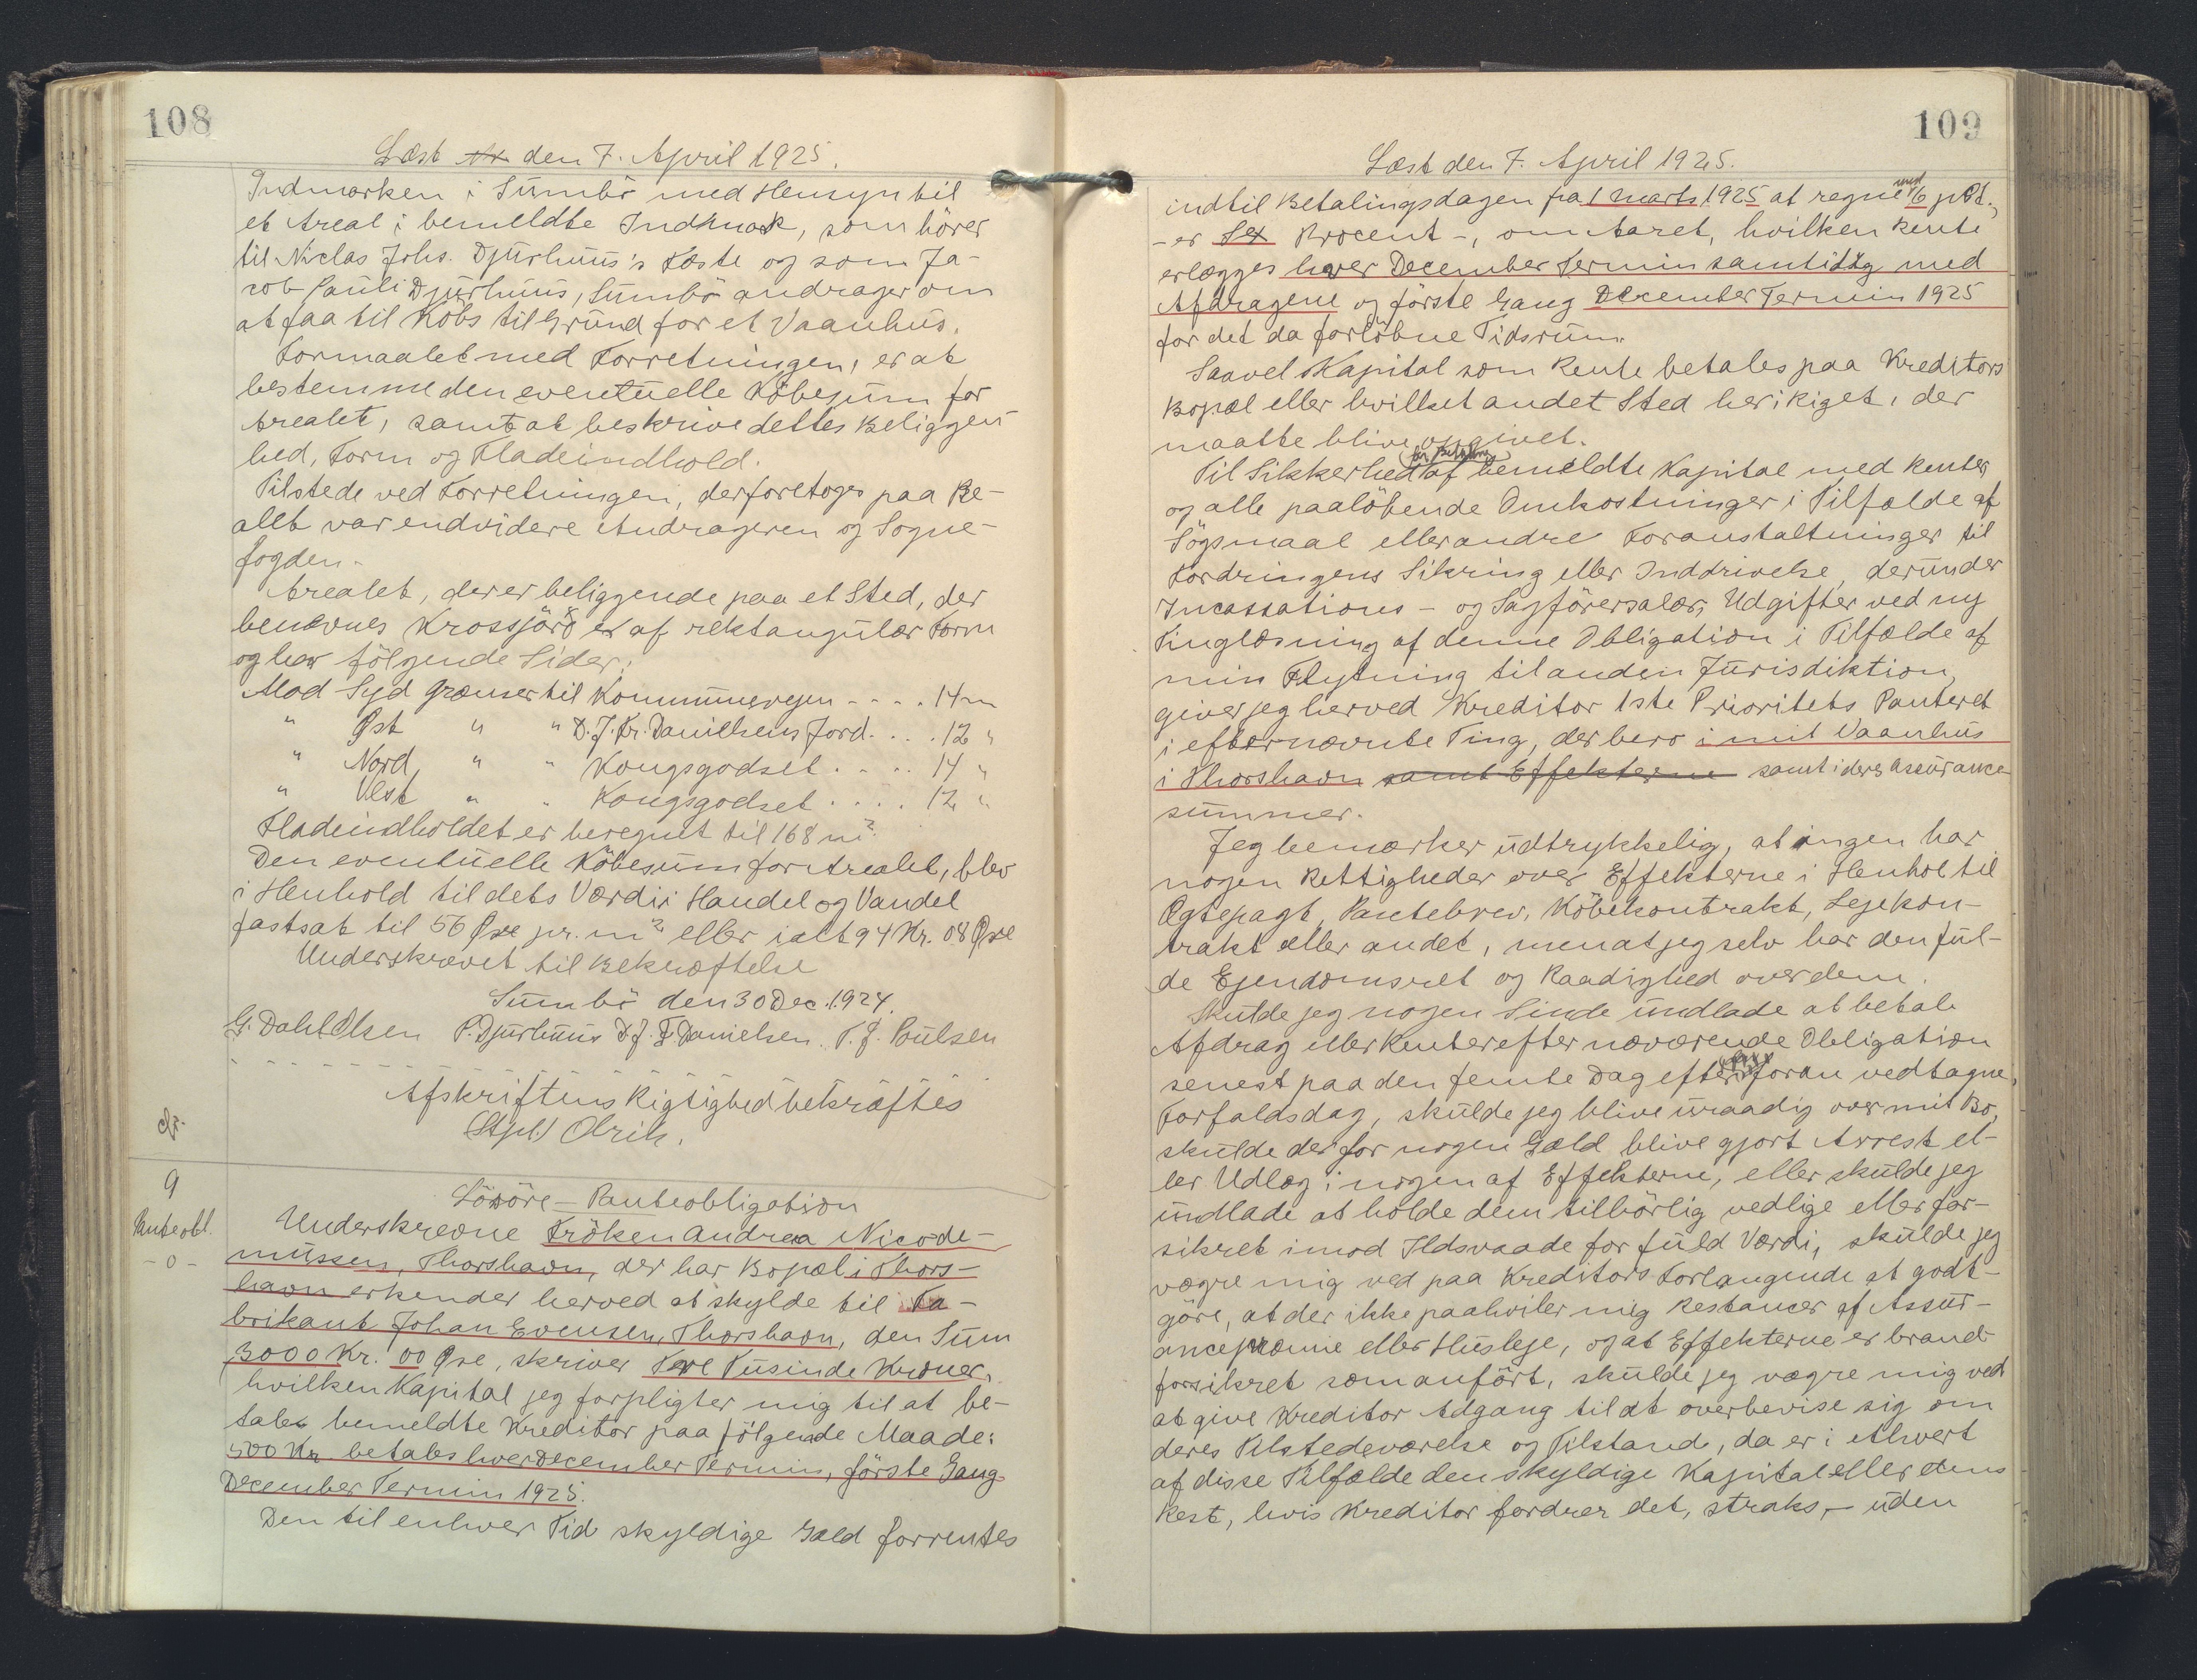 108
Læst den 7. April 1925.
Indmarken i Sumbö med Hensyn til
et Areal i bemeldte Indmark, som hörer
til Niclas Johs. Djurhuus's Fæste og som Ja-
cob Pauli Djurhuus, Sumbö andrager om
at faa til Købs til Grund for et Vaanhus.
Formaalet med Forretningen, er at
bestemme den eventuelle Köbesum for
Arealet, samt at beskrive dettes Beliggen-
hed, Form og Fladeindhold.
Tilstede ved Forretningen, der foretoges paa Be-
allt var endvidere Andrageren og Sogne-
fogden.
Arealet, der er beliggende paa et Sted, der
benævnes Krossjörð er af rektangulær Form
og har fölgende Sider:
Mod Syd grænser til Kommunevejen - - - . 14 m
" Øst " " D. J. Fr. Danielsens Jord. . . . 12 "
" Nord " " Kongsgodset . . . . 14 "
" Vest " " Kongsgodset . . . . 12 "
Fladeindholdet er beregnet til 168 m².
Den eventuelle Köbesum for Arealet, blev
i Henhold til dets Værdi i Handel og Vandel
fastsat til 56 Øre pr. m² eller ialt 94 Kr. 08 Øre
Underskrevet til Bekræftelse
Sumbö den 30 Dec. 1924.
G. Dahl Olsen P. Djurhuus D. J. F. Danielsen. T. J. Poulsen
Afskriftens Rigtighed bekræftes
(Stpl.) Olrik.
9
Panteobl.
- o -
Lösöre - Panteobligation
Underskrevne Fröken Andrea Nicode-
mussen, Thorshavn, der har Bopæl i Thors-
havn erkender herved at skylde til Fa-
brikant Johan Evensen, Thorshavn, den Sum
3000 Kr. 00 Øre, skriver Tre Tusinde Kroner,
hvilken Kapital jeg forpligter mig til at be-
tale bemeldte Kreditor paa fölgende Maade:
500 Kr. betales hver December Termin, förste Gang
December Termin 1925.
Den til enhver Tid skyldige Gæld forrentes
109
Læst den 7. April 1925.
indtil Betalingsdagen fra 1 Marts 1925 at regne med 6 pCt.,
- er Sex Procent -, om Aaret, hvilken Rente
erlægges hver December Termin samtidig med
Afdragene og förste Gang December Termin 1925
for det da forlöbne Tidsrum.
Saavel Kapital som Rente betales paa Kreditors
Bopæl eller hvilket andet Sted her i Riget, der
maatte blive opgivet.
Til Sikkerhed for Betaling af bemeldte Kapital med Renter
og alle paalöbende Omkostninger i Tilfælde af
Sögsmaal eller andre Foranstaltninger til
Fordringens Sikring eller Inddrivelse, derunder
Incassations - og Sagförersalær, Udgifter ved ny
Tinglæsning af denne Obligation i Tilfælde af
min Flytning til anden Jurisdiktion,
giver jeg herved Kreditor 1ste Prioritets Panteret
i efternævnte Ting, der bero i mit Vaanhus
i Thorshavn samt Effekterne samt i deres Assurance
summer.
Jeg bemærker udtrykkelig, at ingen har
nogen Rettigheder over Effekterne i Henhol til
Ægtepagt, Pantebrev, Köbekontrakt, Lejekon-
trakt eller andet, men at jeg selv har den ful-
de Ejendomsret og Raadighed over dem.
Skulde jeg nogen Sinde undlade at betale
Afdrag eller Renter efter nærværende Obligation
senest paa den femte Dag efter foran vedtagne
Forfaldsdag, skulde jeg blive uraadig over mit Bo,
skulde der for nogen Gæld blive gjort Arrest el-
ler Udlæg i nogen af Effekterne, eller skulde jeg
undlade at holde dem tilbörlig vedlige eller for-
sikret imod Ildsvaade for fuld Værdi, skulde jeg
vægre mig ved paa Kreditors Forlangende at godt-
göre, at der ikke paahviler mig Restancer af Assur-
ancepræmie eller Husleje, og at Effekterne er brand-
forsikret som anfört, skulde jeg vægre mig ved
at give Kreditor Adgang til at overbevise sig om
deres Tilstedeværelse og Tilstand, da er i ethvert
af disse Tilfælde den skyldige Kapital eller dens
Rest, hvis Kreditor fordrer det, straks, - uden